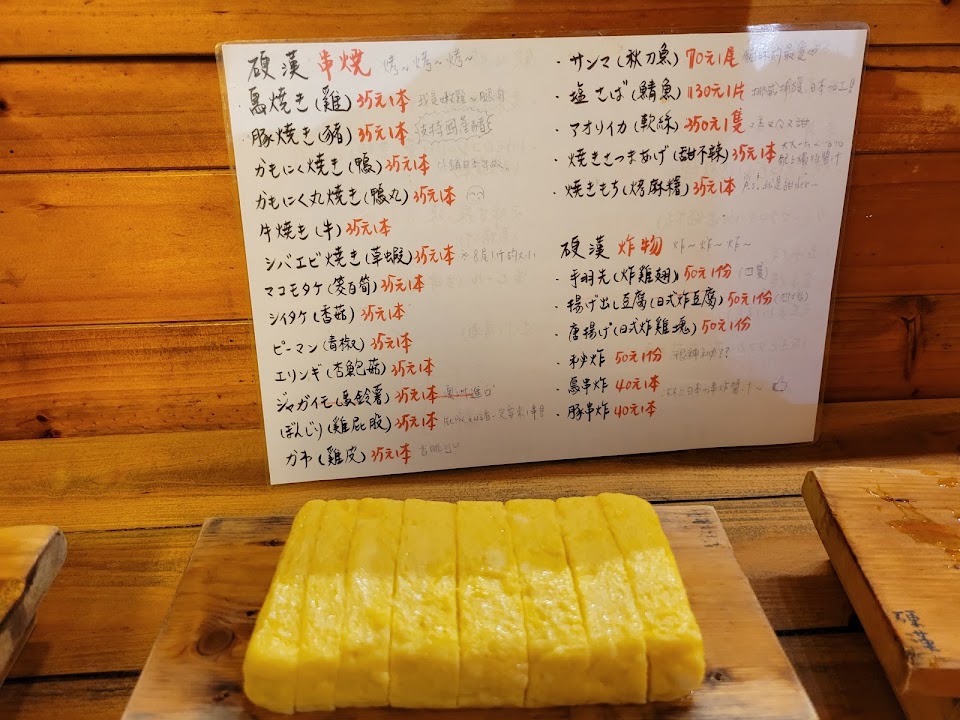 硬漢 串燒 烤~烤~烤~
・鳥焼き(雞)35元1本
・豚焼き(豬)35元1本 支持国產豬
かもにく焼き(鴨)35元1本
かもにく丸焼き(鴨丸)35元1本
牛焼き(牛)35元1本
シバエビ焼き(草蝦)35元1本
マコモタケ(筊白筍)35元1本
シイタケ(香菇)35元1本
ピーマン(青椒)35元1本
エリンギ(杏鮑菇)35元1本
ジャガイモ(馬鈴薯)35元1本
ぼんじり(雞屁股)35元1本
がわ(雞皮)35元1本
・サンマ(秋刀魚)70元1尾
・塩さば(鯖魚)130元1片
・アオリイカ(軟絲)350元1隻
・焼きさつまあげ(甜不辣)35元1本
・焼きもち(烤麻糬)35元1本
硬漢 炸物 炸~炸~炸~
・手羽先(炸雞翅)50元1份
・揚げ出し豆腐(日式炸豆腐)50元1份
・唐揚げ(日式炸雞塊)50元1份
・秘炸 50元1份
・鳥串炸 40元1本
・豚串炸 40元1本
硬漢